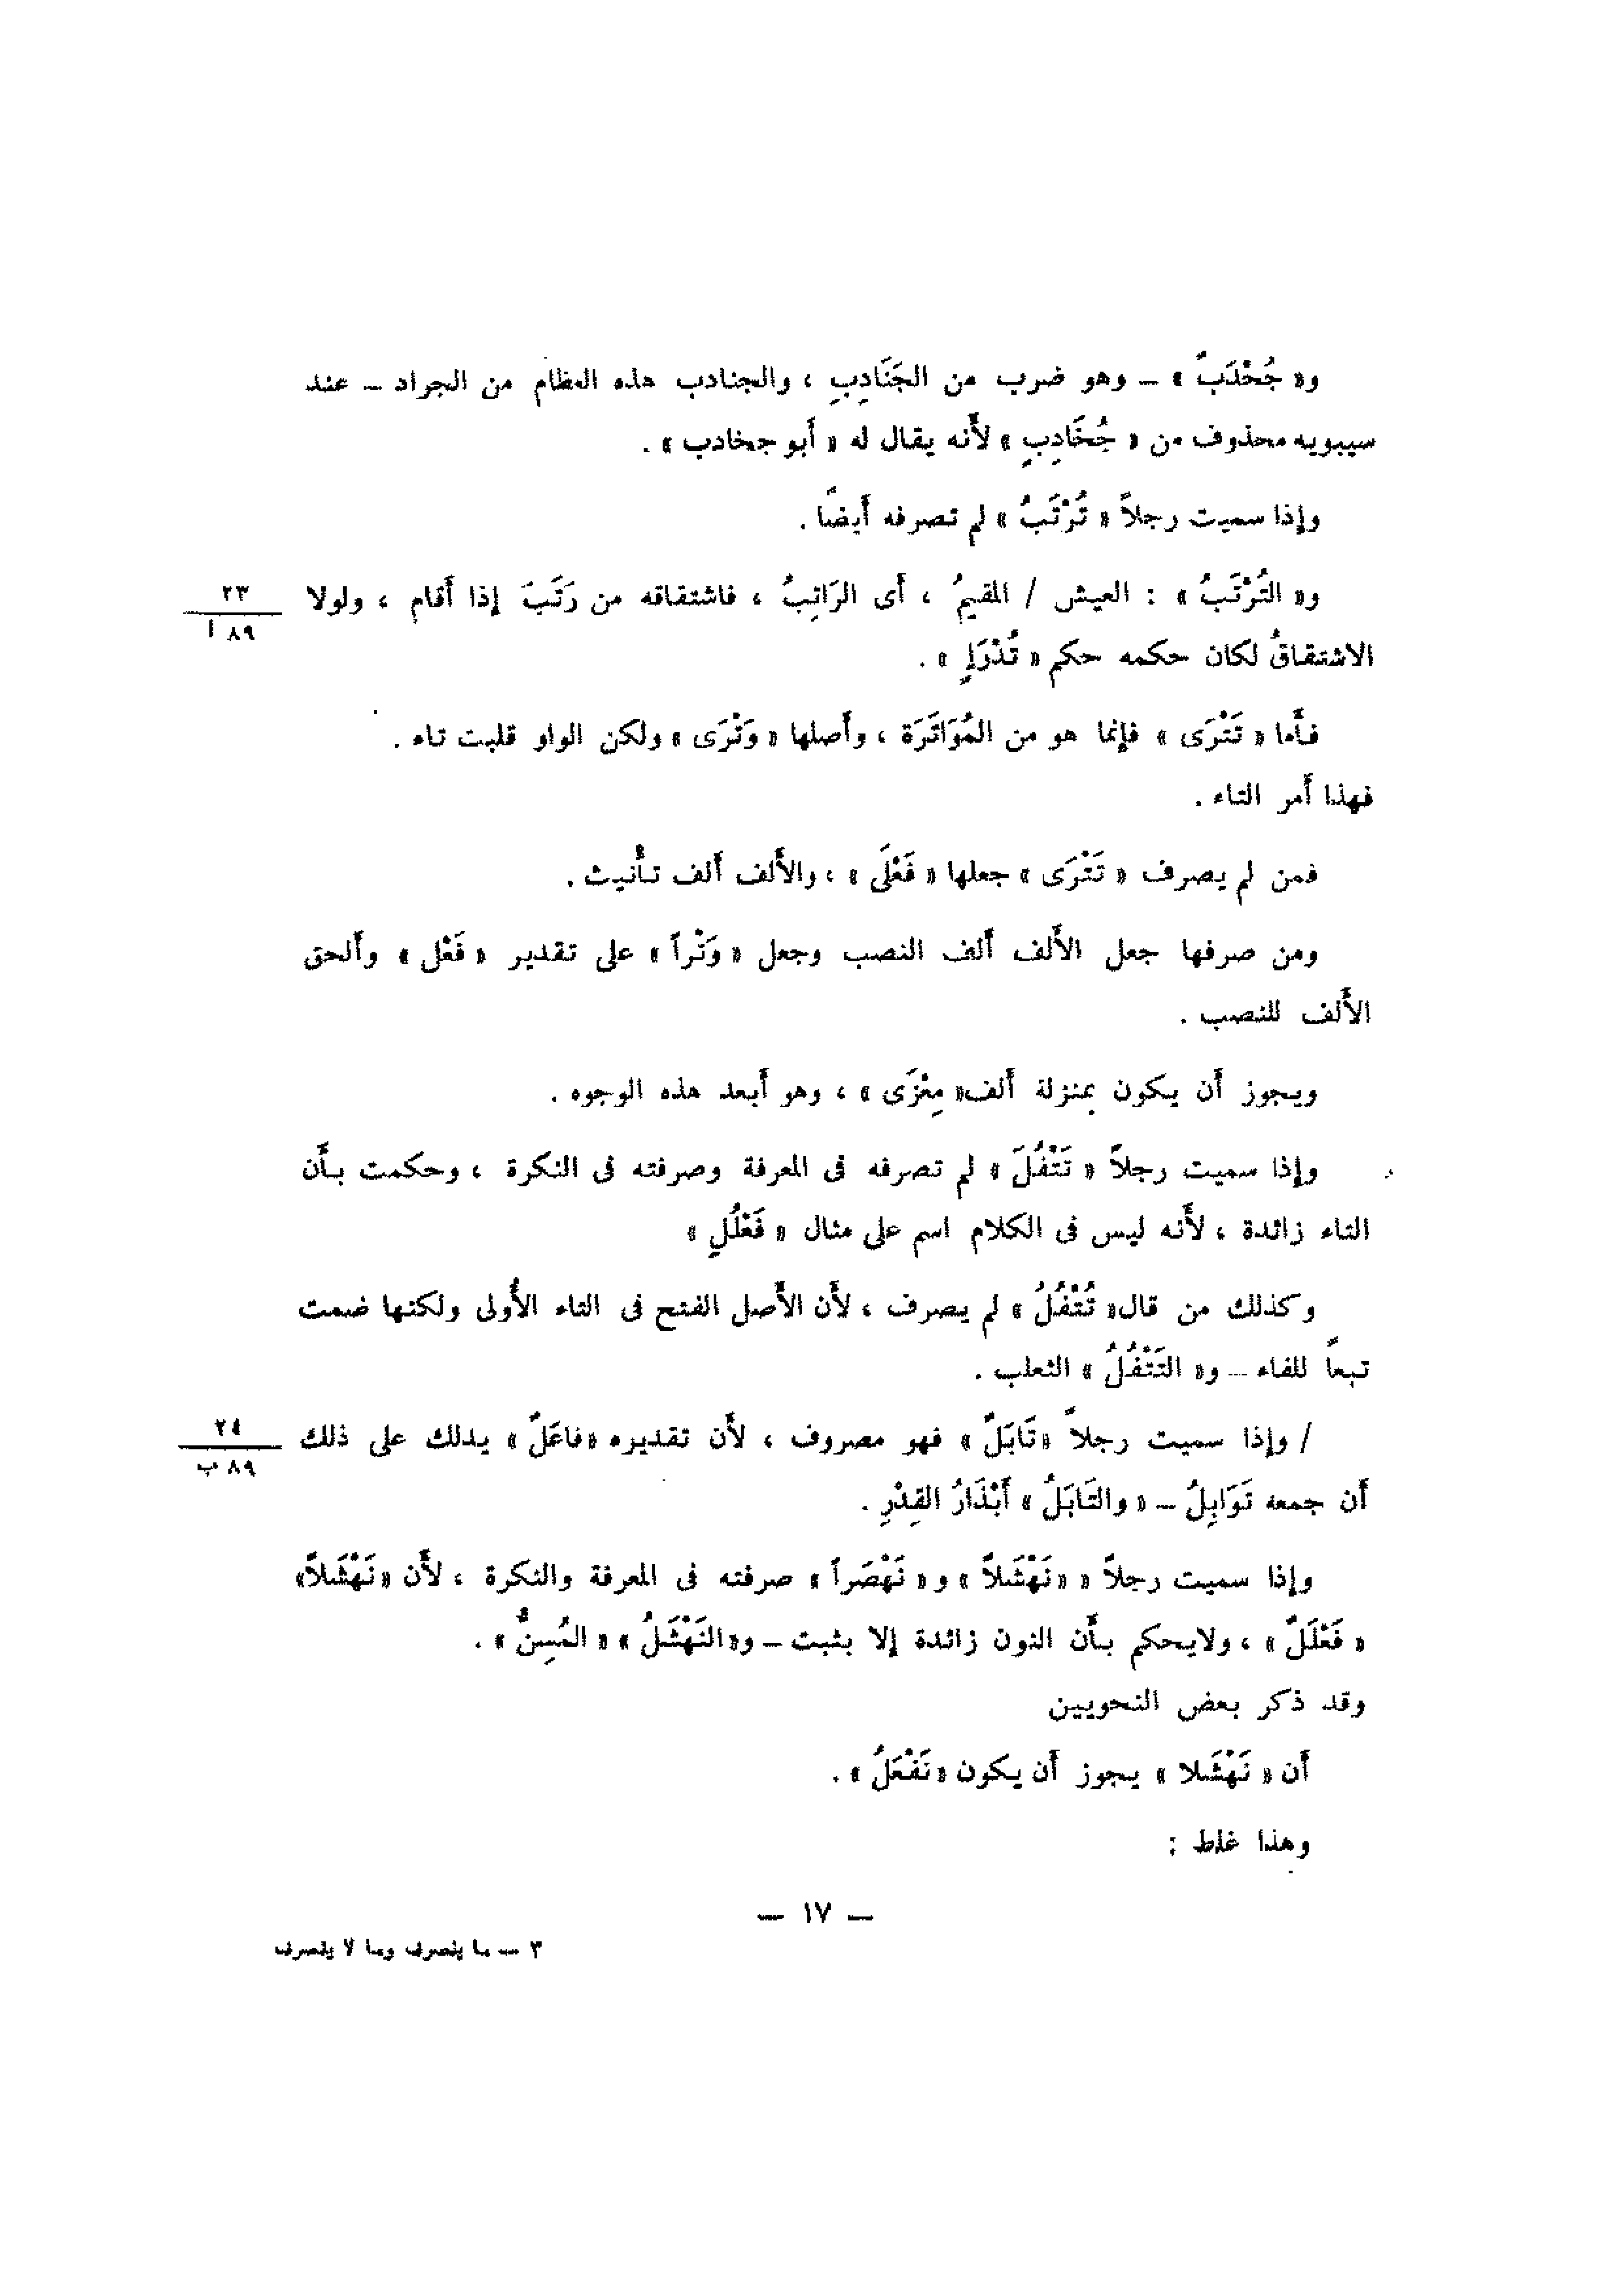 و« جُخْدَبٌ » – وهو ضرب من الجَنَادِبِ ، والجنادب هذه العظام من الجراد – عند
سيبويه محذوف من « جُخَادِبٍ » لأَنه يقال له « أَبو جخادب » .
وإذا سميت رجلاً « تُرْتَبُ » لم تصرفه أَيضًا .
و« التُرْتَبُ » : العيش / المقيمُ ، أَى الرَاتِبُ ، فاشتقاقه من رَتَبَ إذا أَقام ، ولولا
٢٣
٨٩ ا
الاشتقاقُ لكان حكمه حكم « تُدْرَإٍ » .
فأَما « تَتْرَى » فإنما هو من المُوَاتَرَة ، وأَصلها « وَتْرَى » ولكن الواو قلبت تاء .
فهذا أَمر التاء .
فمن لم يصرف « تَتْرَى » جعلها « فَعْلَى » ، والأَلف أَلف تأْنيث .
ومن صرفها جعل الأَلف أَلف النصب وجعل « وَتْراً » على تقدير « فَعْل » وأَلحق
الأَلف للنصب .
ويجوز أَن يكون بمنزلة أَلف« مِعْزَى » ، وهو أَبعد هذه الوجوه .
وإذا سميت رجلاً « تَتْفُلَ » لم تصرفه فى المعرفة وصرفته فى النكرة ، وحكمت بأَن
التاء زائدة ، لأَنه ليس فى الكلام اسم على مثال « فَعْلُلٍ »
وكذلك من قال« تُتْفُلُ » لم يصرف ، لأَن الأَصل الفتح فى التاء الأُولى ولكنها ضمت
تبعاً للفاء – و« التَتْفُلُ » الثعلب .
/ وإذا سميت رجلاً «تَابَلٌ » فهو مصروف ، لأَن تقديره «فاعَلٌ» يدلك على ذلك
٢٤
٨٩ ب
أَن جمعه تَوَابِلُ – « والتَابَلُ » أَبْذَارُ القِدْرِ .
وإذا سميت رجلاً « «نَهْشَلاً » و« نَهْصَراً » صرفته فى المعرفة والنكرة ، لأَن «نَهْشَلاً»
« فَعْلَلٌ » ، ولايحكم بأَن النون زائدة إلا بثبت – و«النَهْشَلُ » « المُسِنٌّ » .
وقد ذكر بعض النحويين
أَن « نَهْشَلا » يجوز أَن يكون «نَفْعَلُ » .
وهذا غلط :
— ١٧ —
٣ — ما ينصرف وما لا ينصرف